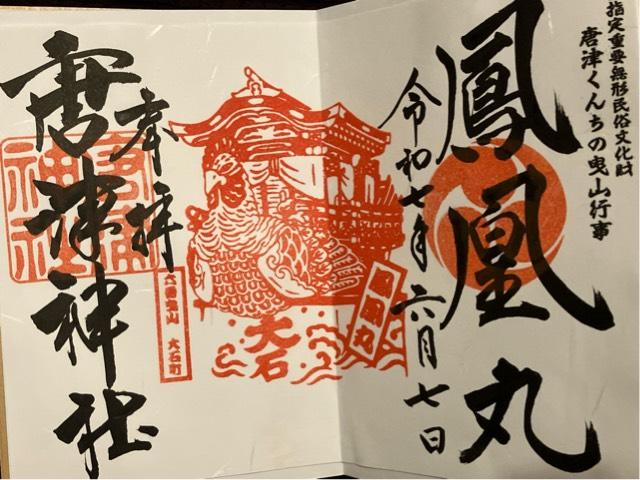 指定重要無形民俗文化財
唐津くんちの曳山行事
鳳凰丸
令和七年六月七日
鳳凰丸
大石
六番曳山 大石町
奉拝
唐津神社
唐津神社